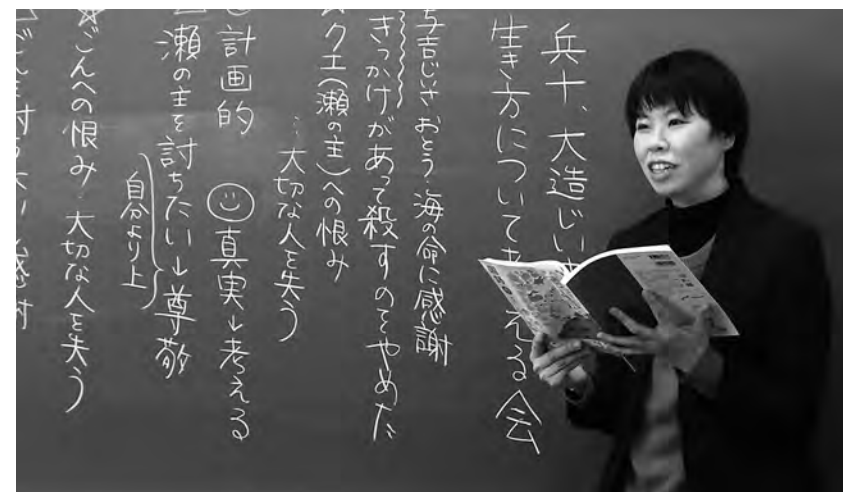 兵十、大造じい
生き方について考える会
与吉じいさ おとう 海の命に感謝
きっかけがあって殺すのをやめた
クエ(瀬の主)への恨み
大切な人を失う
計画的 真実→考える
瀬の主を討ちたい→尊敬
自分より上
ごんへの恨み 大切な人を失う